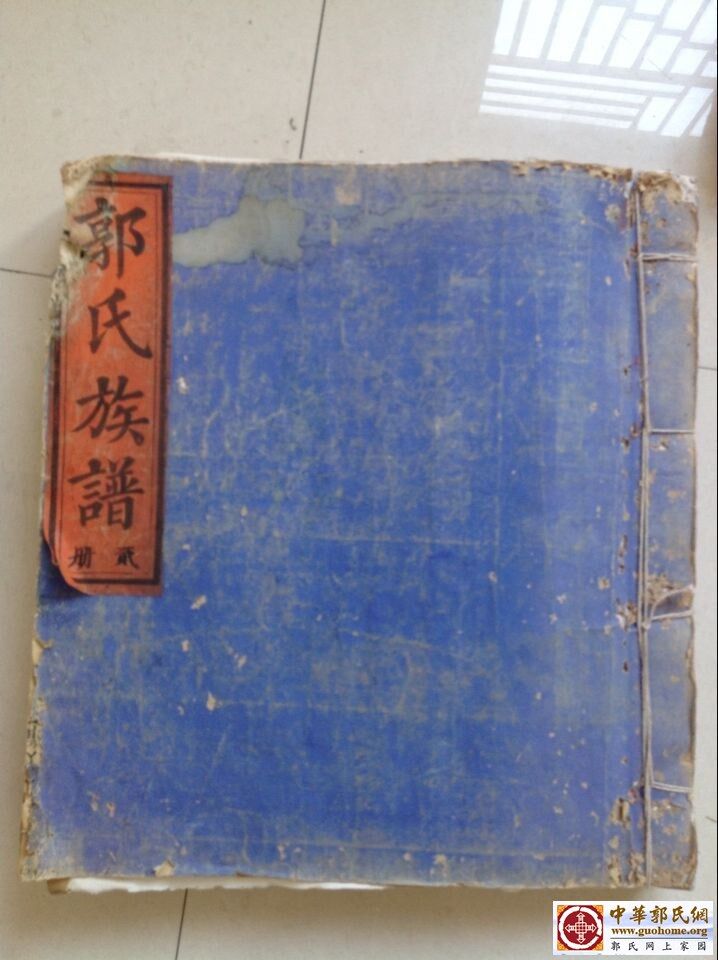 郭氏族譜
貳册
中華郭氏網
www.guohome.org
郭氏网上家园